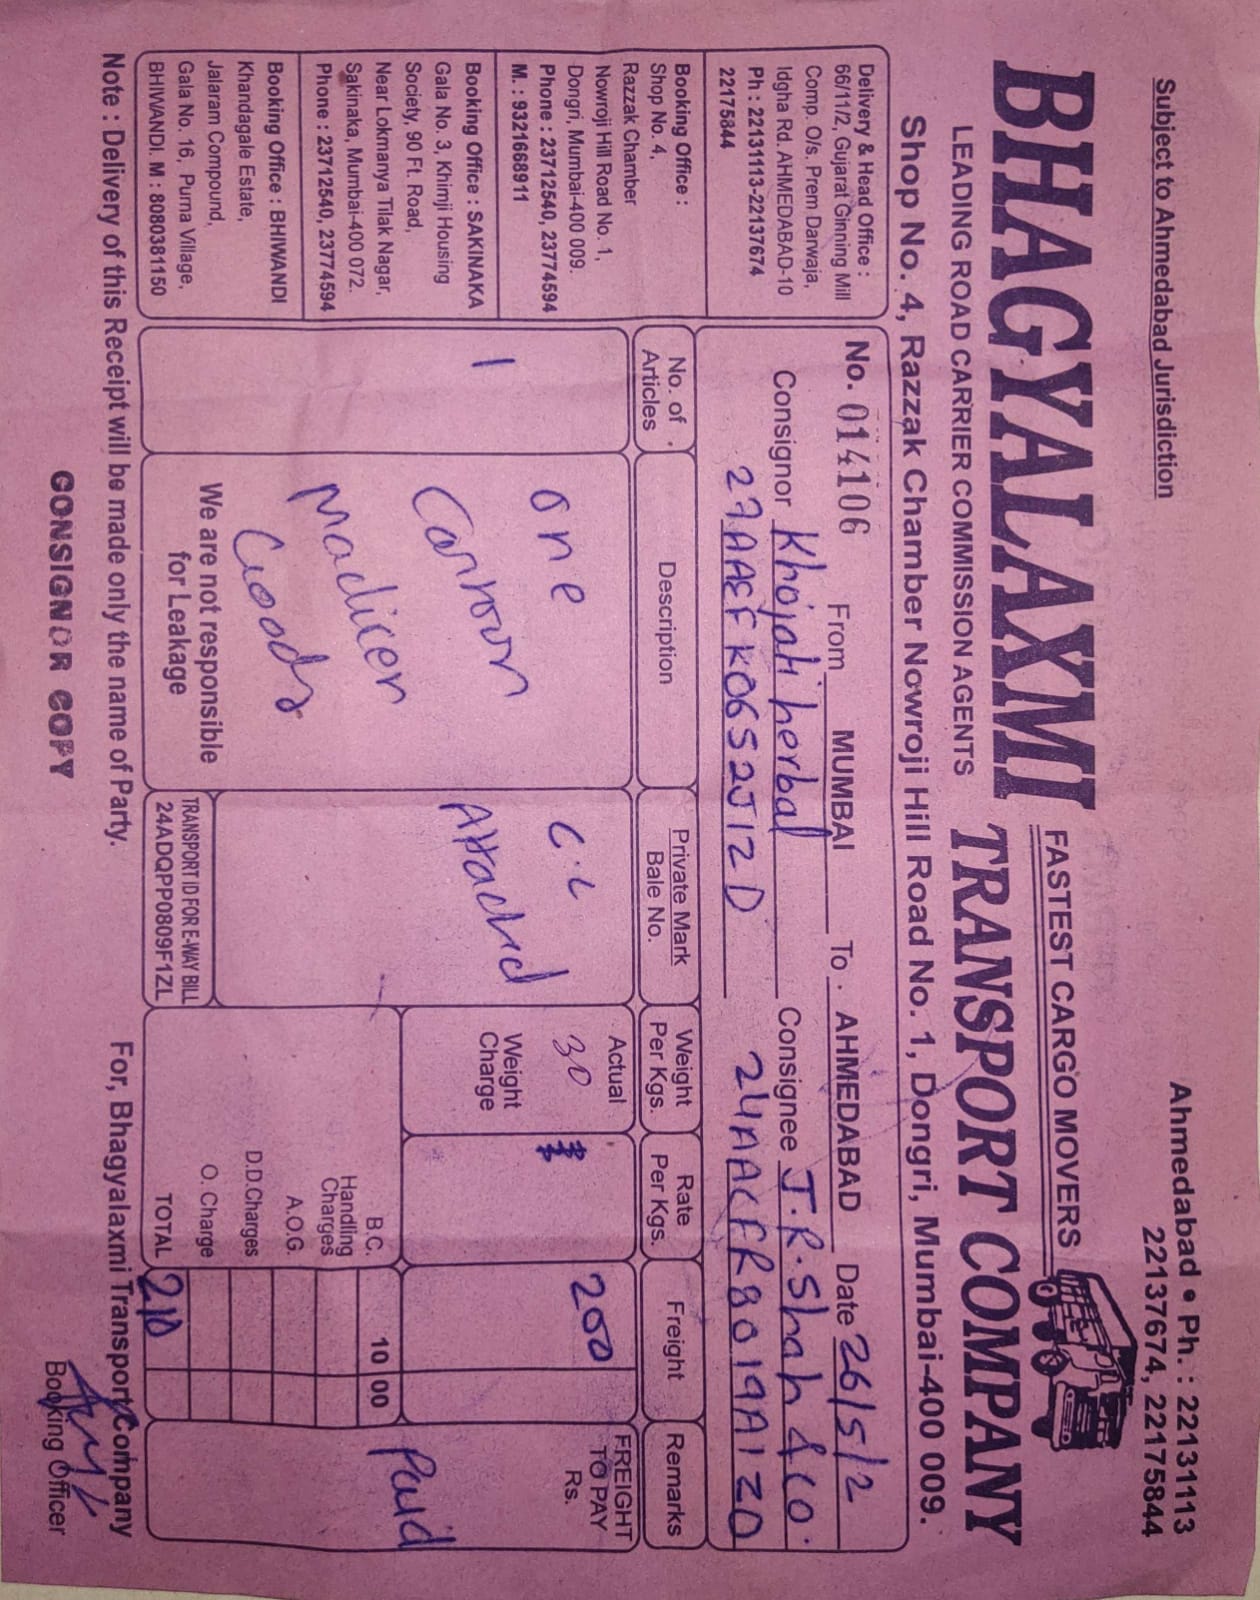 Subject to Ahmedabad Jurisdiction
Ahmedabad • Ph. : 22131113
22137674, 22175844
FASTEST CARGO MOVERS
BHAGYALAXMI TRANSPORT COMPANY
LEADING ROAD CARRIER COMMISSION AGENTS
Shop No. 4, Razzak Chamber Nowroji Hill Road No. 1, Dongri, Mumbai-400 009.
Delivery & Head Office :
66/11/2, Gujarat Ginning Mill
Comp. O/s. Prem Darwaja,
Idgha Rd. AHMEDABAD-10
Ph : 22131113-22137674
22175844
Booking Office :
Shop No. 4,
Razzak Chamber
Nowroji Hill Road No. 1,
Dongri, Mumbai-400 009.
Phone : 23712540, 23774594
M. : 9321668911
Booking Office : SAKINAKA
Gala No. 3, Khimji Housing
Society, 90 Ft. Road,
Near Lokmanya Tilak Nagar,
Sakinaka, Mumbai-400 072.
Phone : 23712540, 23774594
Booking Office : BHIWANDI
Khandagale Estate,
Jalaram Compound,
Gala No. 16, Purna Village,
BHIWANDI. M : 8080381150
No. 014106 From MUMBAI To. AHMEDABAD Date 26/5/2
Consignor Khojati herbal Consignee J.R. Shah & co.
27AAEFK0652J1ZD 24AACFR8019A1ZO
No. of Articles
Description
Private Mark
Bale No.
Weight Per Kgs.
Rate Per Kgs.
Freight
Remarks
1
one
Cartoon
Madicen
Goods
We are not responsible
for Leakage
C.C
Attached
TRANSPORT ID FOR E-WAY BILL
24ADQPP0809F1ZL
Actual
30
Weight
Charge
200
FREIGHT
TO PAY
Rs.
Paid
B.C. 10 00
Handling
Charges
A.O.G.
D.D.Charges
O. Charge
TOTAL 210
Note : Delivery of this Receipt will be made only the name of Party.
For, Bhagyalaxmi Transport Company
CONSIGNOR COPY
Booking Officer